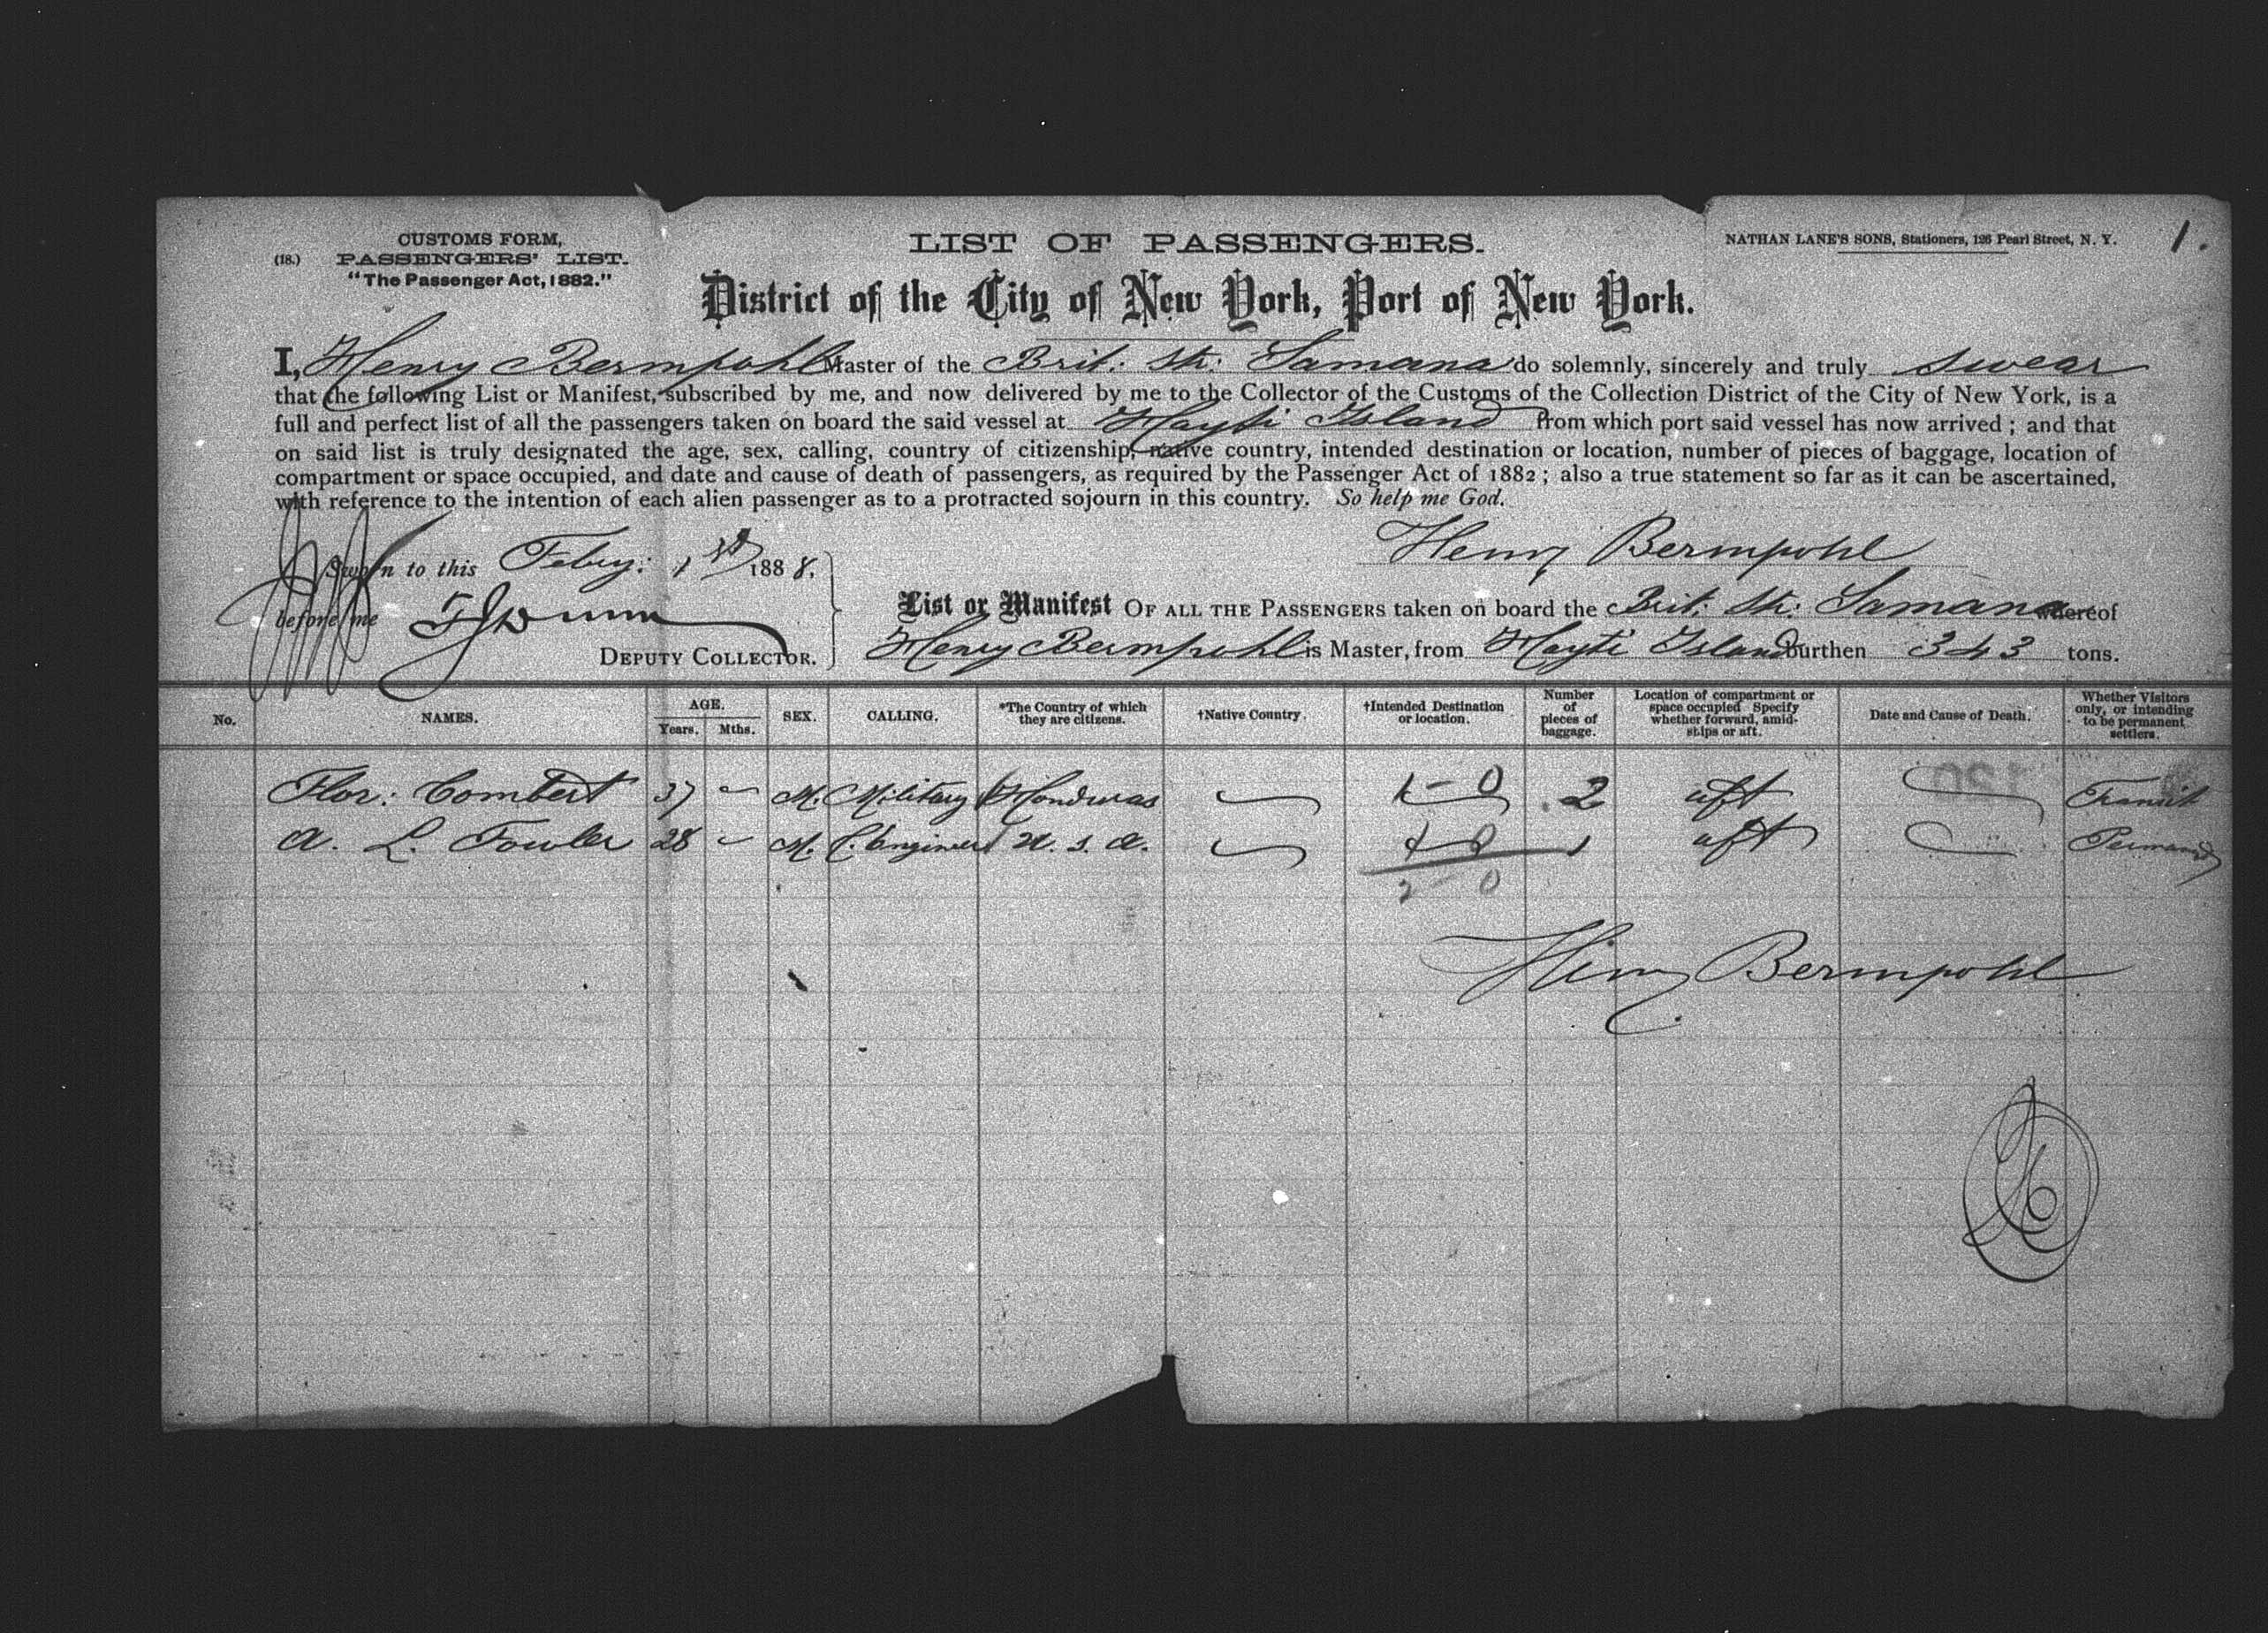 CUSTOMS FORM,
(18.) PASSENGERS' LIST.
"The Passenger Act, 1882."
LIST OF PASSENGERS.
NATHAN LANE'S SONS, Stationers, 126 Pearl Street, N. Y.
1.
District of the City of New York, Port of New York.
I, Henry Bermpohl Master of the Brit: Str: Samana do solemnly, sincerely and truly swear
that the following List or Manifest, subscribed by me, and now delivered by me to the Collector of the Customs of the Collection District of the City of New York, is a
full and perfect list of all the passengers taken on board the said vessel at Hayti Island from which port said vessel has now arrived; and that
on said list is truly designated the age, sex, calling, country of citizenship, native country, intended destination or location, number of pieces of baggage, location of
compartment or space occupied, and date and cause of death of passengers, as required by the Passenger Act of 1882; also a true statement so far as it can be ascertained,
with reference to the intention of each alien passenger as to a protracted sojourn in this country. So help me God.
Sworn to this Feby: 1st 1888.
Henry Bermpohl
before me
DEPUTY COLLECTOR.
List or Manifest OF ALL THE PASSENGERS taken on board the Brit: Str: Samana whereof
Henry Bermpohl is Master, from Hayti Island burthen 343 tons.
No. NAMES. AGE. Years. Mths. SEX. CALLING. *The Country of which they are citizens. †Native Country. †Intended Destination or location. Number of pieces of baggage. Location of compartment or space occupied Specify whether forward, amidships or aft. Date and Cause of Death. Whether Visitors only, or intending to be permanent settlers.
Flor: Combert 37 M. Military Honduras 1-0 2 aft Transit
A. L. Fowler 28 M. C. Engineer U. S. A. 1-0 1 aft Permanent
2-0
Henry Bermpohl